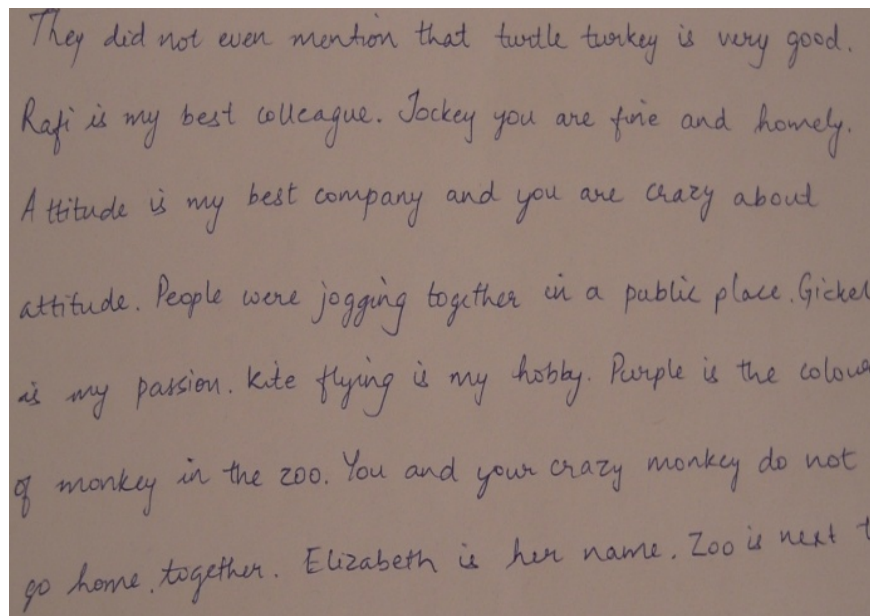 They did not even mention that turtle turkey is very good.
Rafi is my best colleague. Jockey you are fine and homely.
Attitude is my best company and you are crazy about
attitude. People were jogging together in a public place.
is my passion. Kite flying is my hobby. Purple is the
of monkey in the zoo. You and your crazy monkey do not
go home. together. Elizabeth is her name. Zoo is next